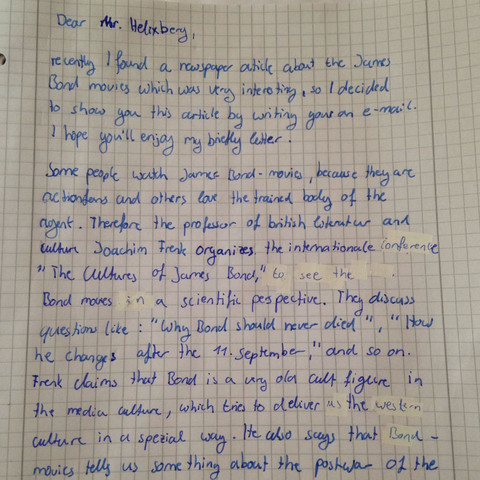 Dear Mr. Helixberg,
recently I found a newspaper article about the James
Bond movies which was very interesting, so I decided
to show you this article by writing your an e-mail.
I hope you'll enjoy my briefly letter.
Some people watch James Bond-movies, because they are
actionfans and others love the trained body of the
agent. Therefore the professor of british literatur and
culture Joachim Frenk organizes the internationale conference
"The Cultures of James Bond," to see the
Bond moves in a scientific perspective. They discuss
question like: "Why Bond should never died", "How
he changes after the 11. September," and so on.
Frenk claims that Bond is a very old cult figure in
the media culture, which tries to deliver us the western
culture in a spezial way. He also says that Bond-
movies tells us something about the postwar of the